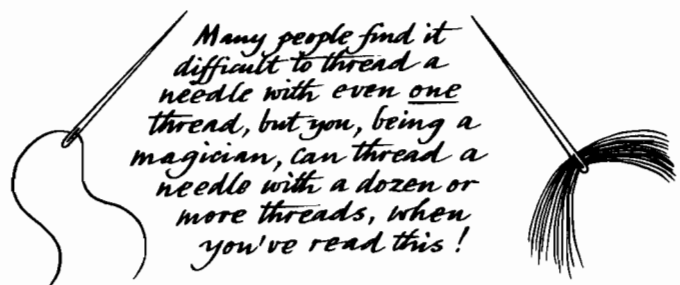 Many people find it
difficult to thread a
needle with even one
thread, but you, being a
magician, can thread a
needle with a dozen or
more threads, when
you've read this!